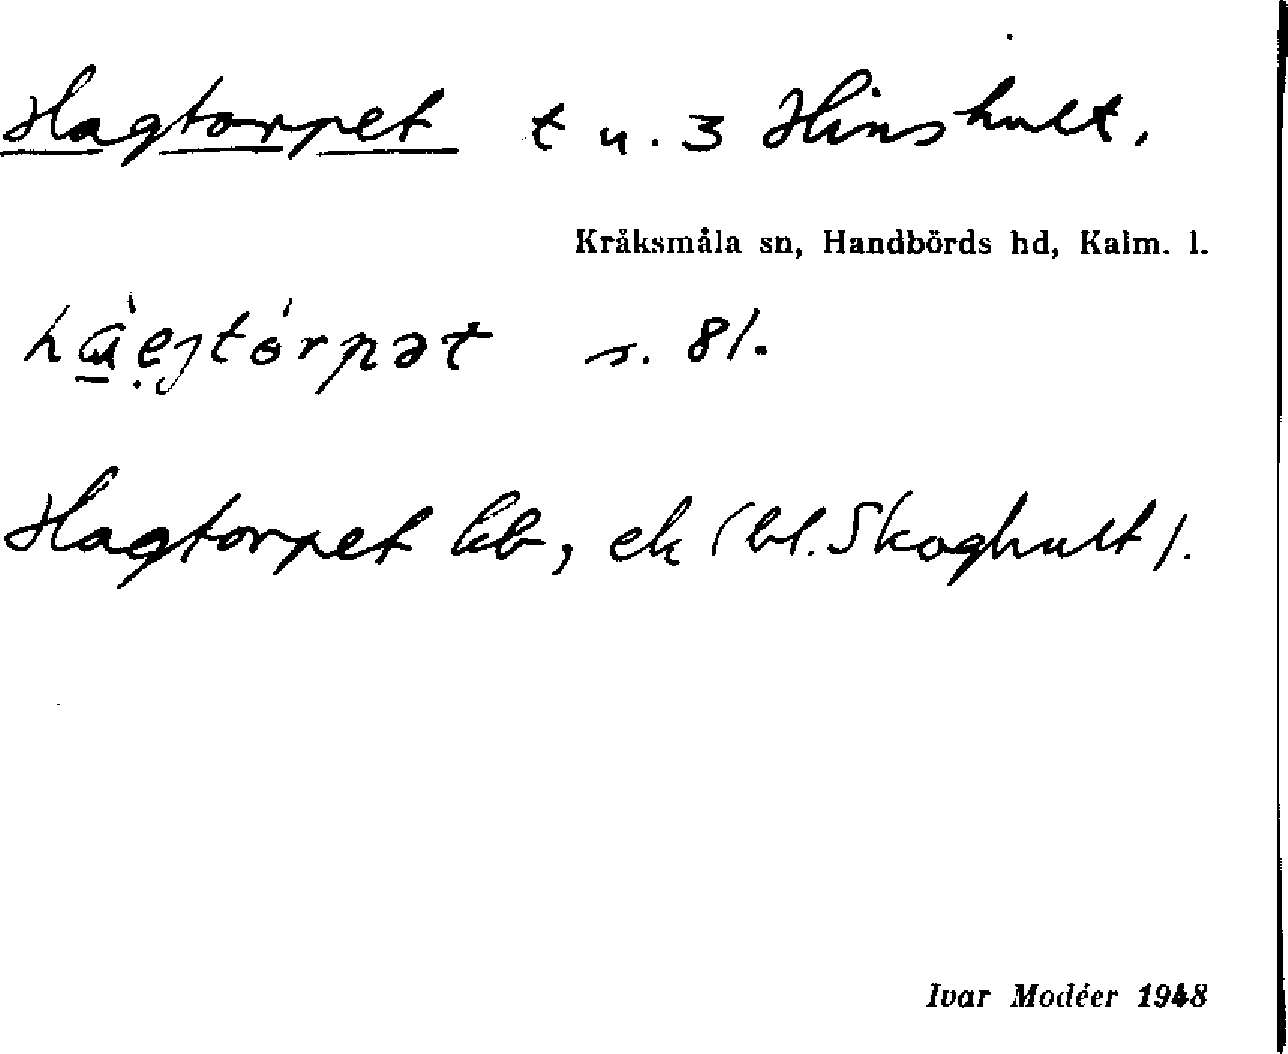 Hagtorpet t u. 3 Hinshult.
Kråksmåla sn, Handbörds hd, Kalm. l.
s. 81.
Hagtorpet kb, ek (bl. Skoghult).
Ivar Modéer 1948